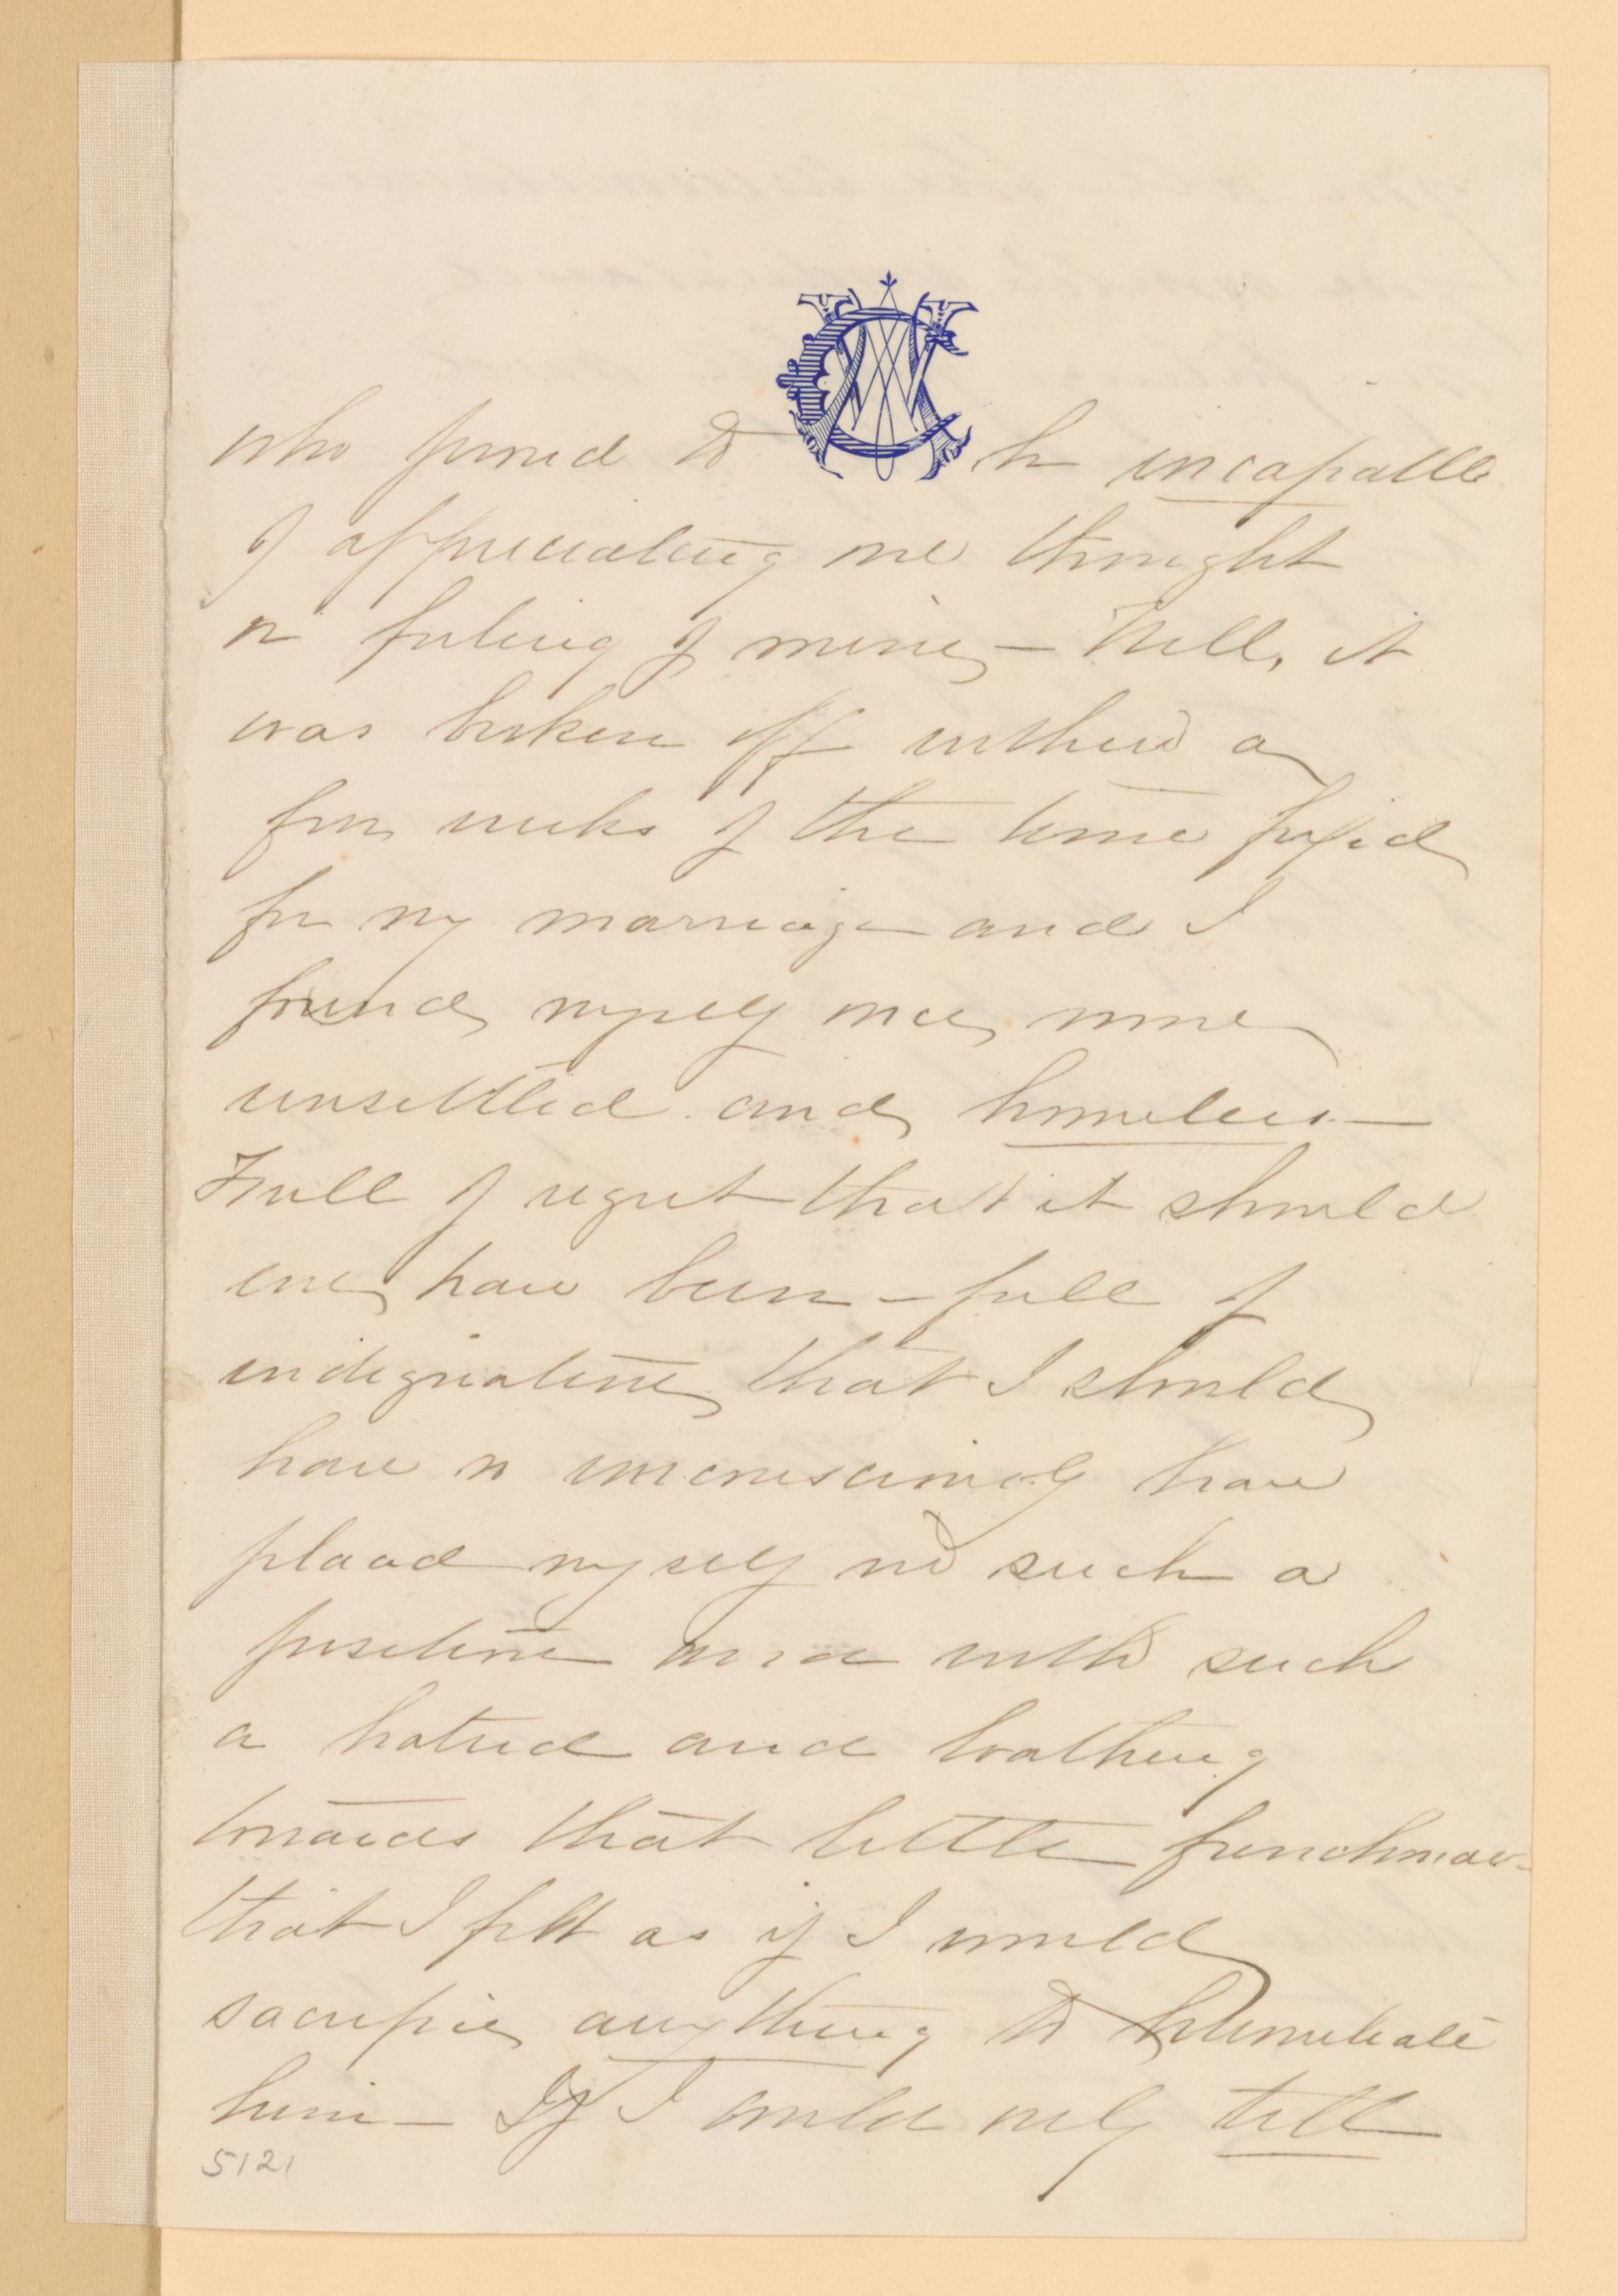 who proved to be incapable
of appreciating one thought
or feeling of mine – Well, it
was broken off within a
few weeks of the time fixed
for my marriage and I
found myself once more
unsettled and homeless –
Full of regret that it should
ever have been – full of
indignation that I should
have so unconsciously have
placed myself in such a
position and with such
a hatred and loathing
towards that little frenchman
that I felt as if I would
sacrifice anything to humiliate
him – If I could only tell
5121